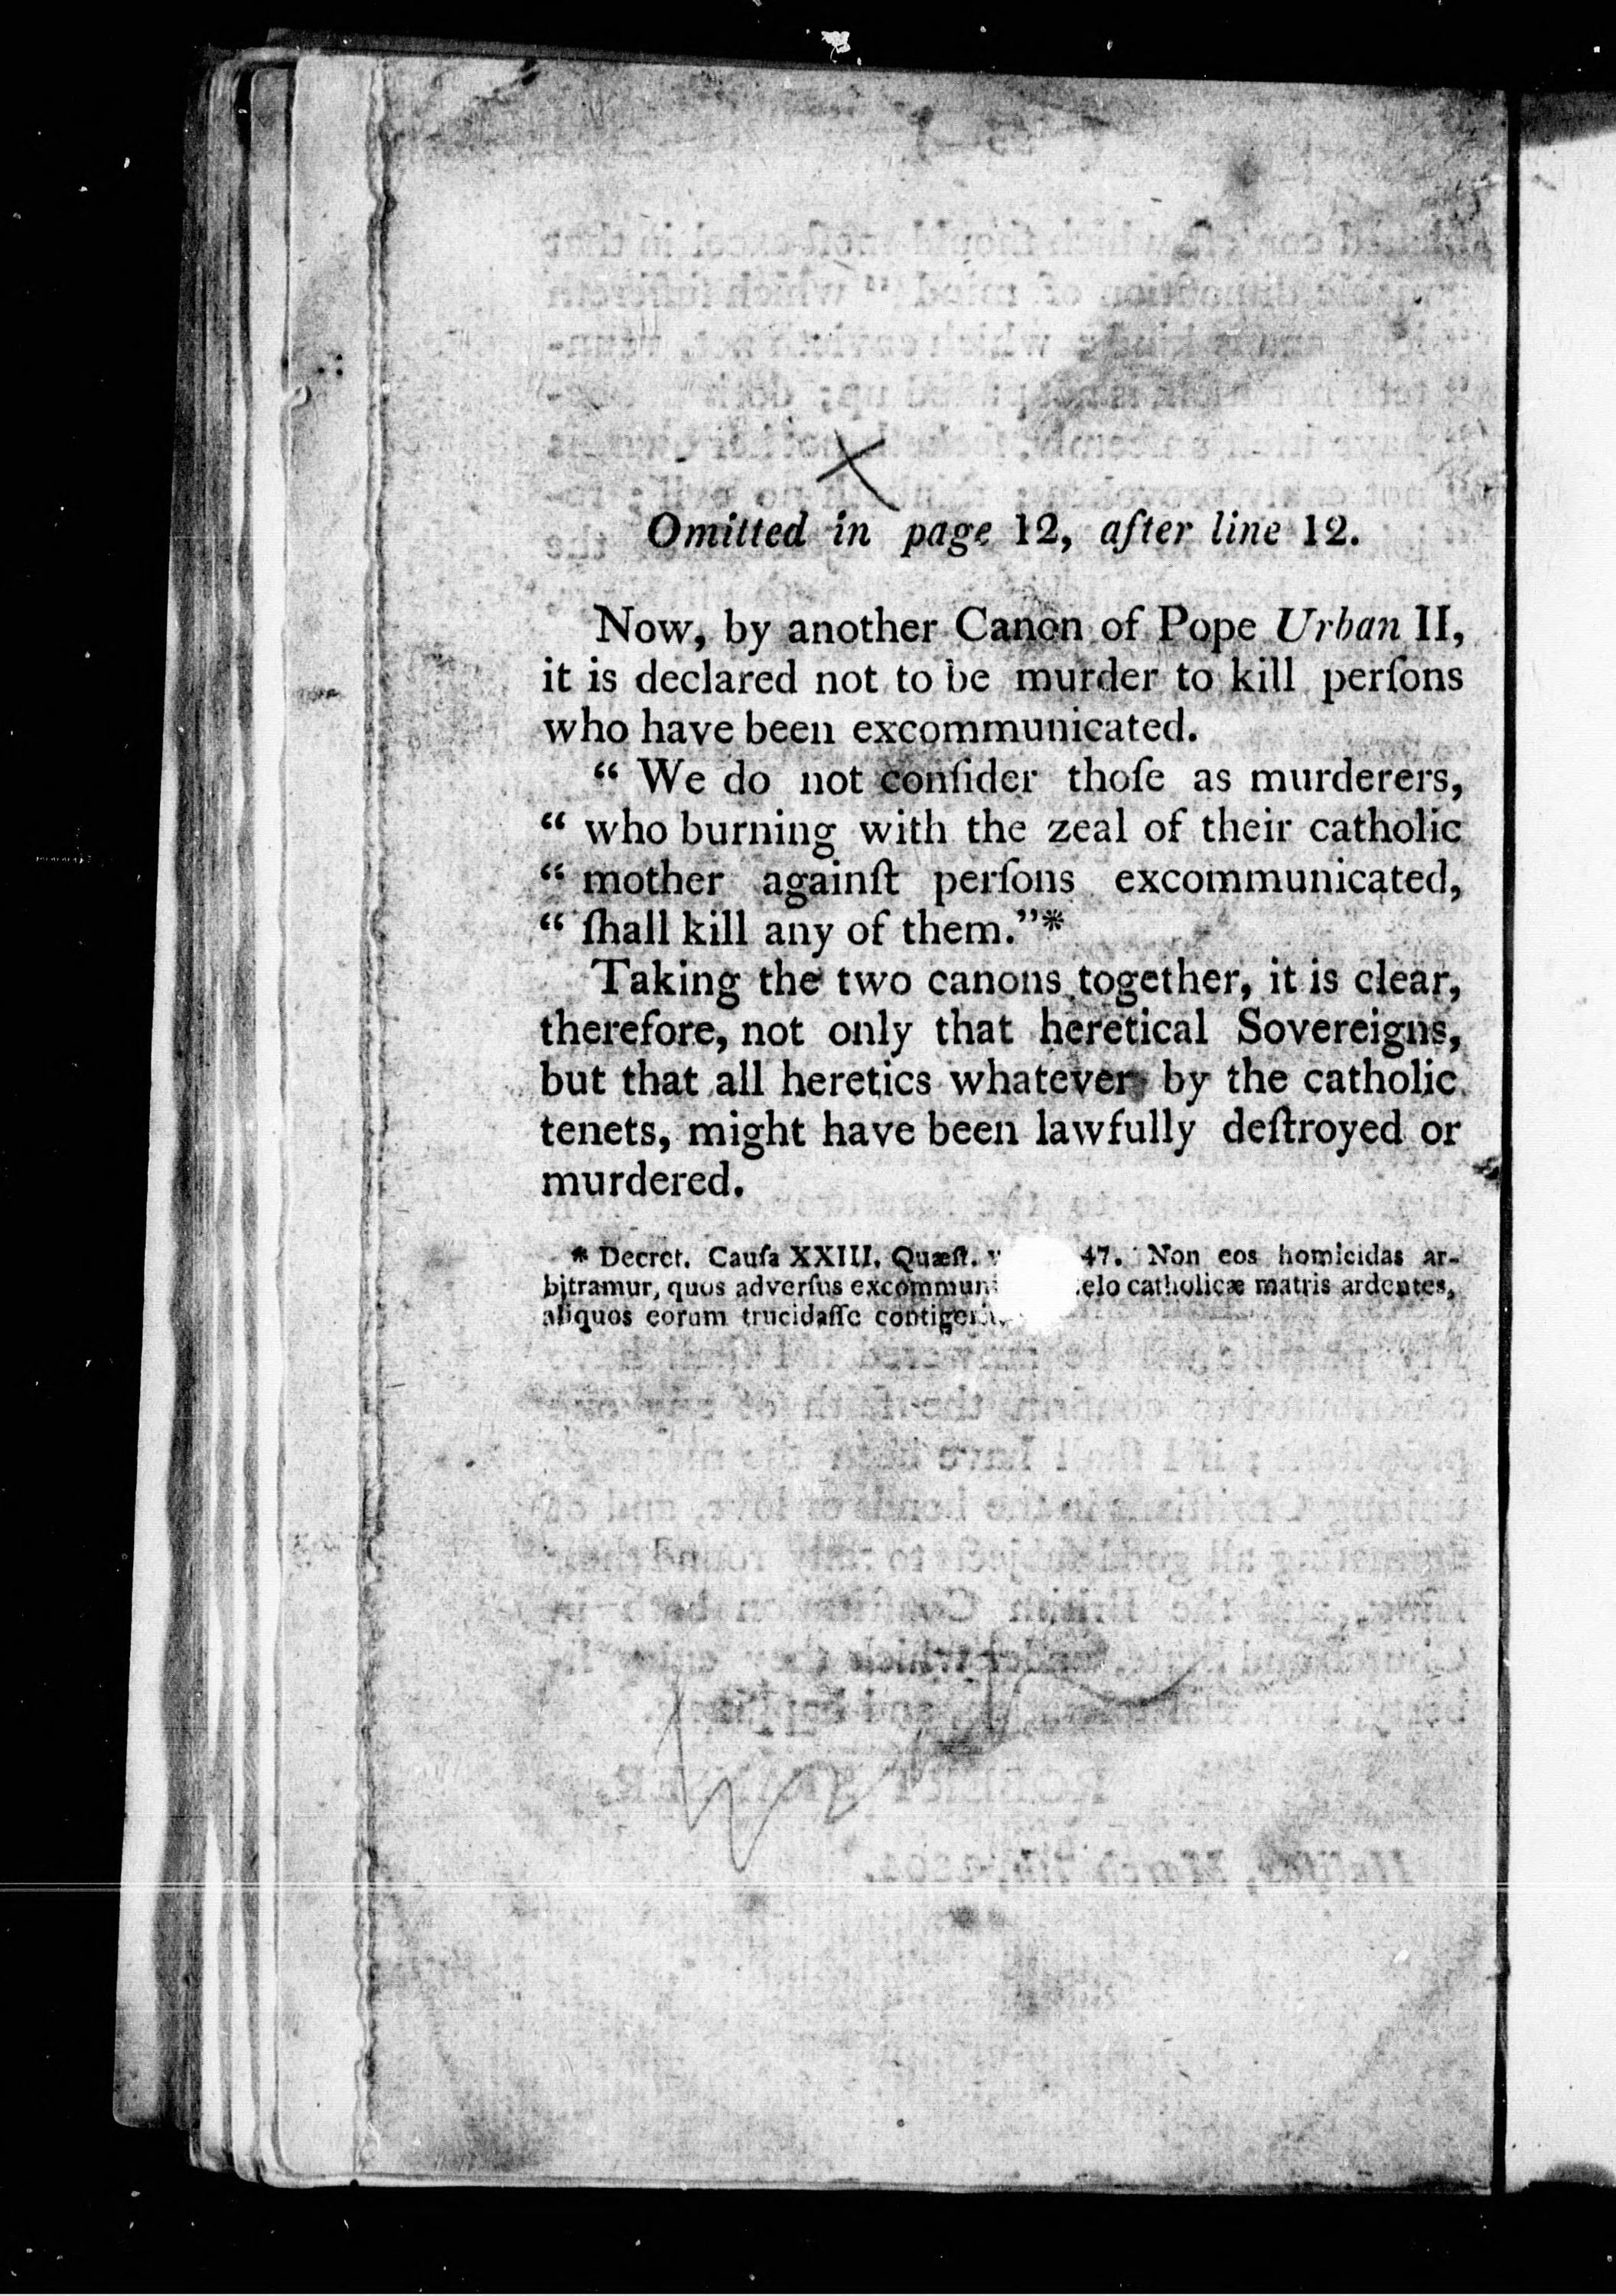 Omitted in page 12, after line 12.
Now, by another Canon of Pope Urban II,
it is declared not to be murder to kill perſons
who have been excommunicated.
“ We do not conſider thoſe as murderers,
“ who burning with the zeal of their catholic
“ mother againſt perſons excommunicated,
“ ſhall kill any of them.”*
Taking the two canons together, it is clear,
therefore, not only that heretical Sovereigns,
but that all heretics whatever by the catholic
tenets, might have been lawfully deſtroyed or
murdered.
* Decret. Cauſa XXIII. Quæſt. 47. Non eos homicidas ar-
bitramur, quos adverſus excommuni elo catholicæ matris ardentes,
aliquos eorum trucidaſſe